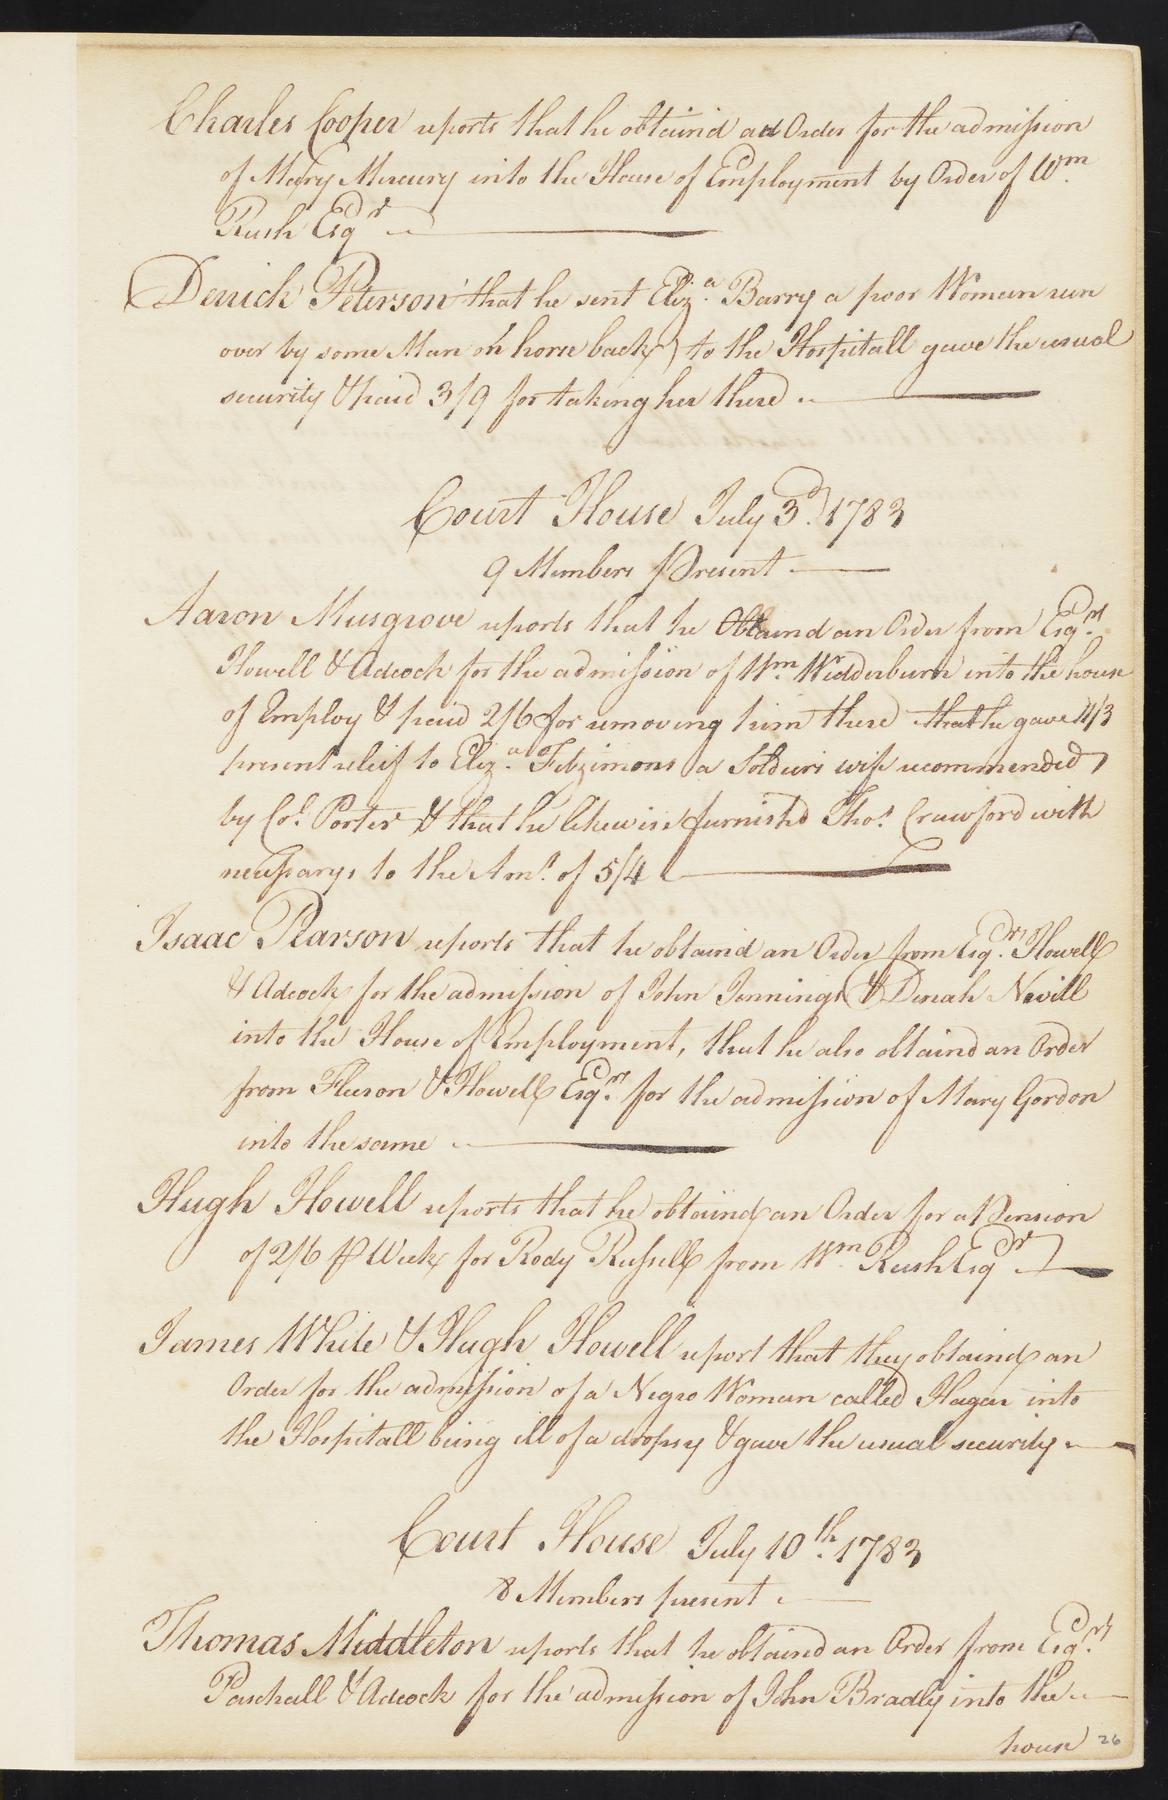 Charles Cooper reports that he obtaind ad Order for the admission
of Mary Mercury into the House of Employment by Order of Wm
Rush Esqr
Derrick Peterson that he sent Eliza. Barry a poor Woman run
over by some Man on horse back) to the Hospitall gave the usual
security & paid 3/9 for taking her there
Court House July 3d. 1783
9 Members Present
Aaron Musgrove reports that he Obtaind an Order from Esqrs.
Howell & Adcock for the admission of Wm. Widderburn into the house
of Employ & paid 2/6 for removing him there that he gave 11/3
present releif to Eliza. Fitzimons a Soldiers wife recommended
by Col. Porter & that he likewise furnishd Thos. Crawford with
necessarys to the Amt. of 5/4
Isaac Pearson reports that he obtaind an Order from Esqrs. Howell
& Adcock for the admission of John Jennings & Dinah Nevill
into the House of Employment, that he also obtaind an Order
from Fleeson & Howell Esqrs. for the admission of Mary Gordon
into the same
Hugh Howell reports that he obtaind an Order for a Pension
of 2/6 P Week for Rody Russell from Wm. Rush Esqr
James White & Hugh Howell report that they obtaind an
Order for the admission of a Negro Woman called Hagar into
the Hospitall being ill of a dropsy & gave the usual security
Court House July 10th. 1783
8 Members present
Thomas Middleton reports that he obtaind an Order from Esqrs.
Paschall & Adcock for the admission of John Bradly into the
house 26